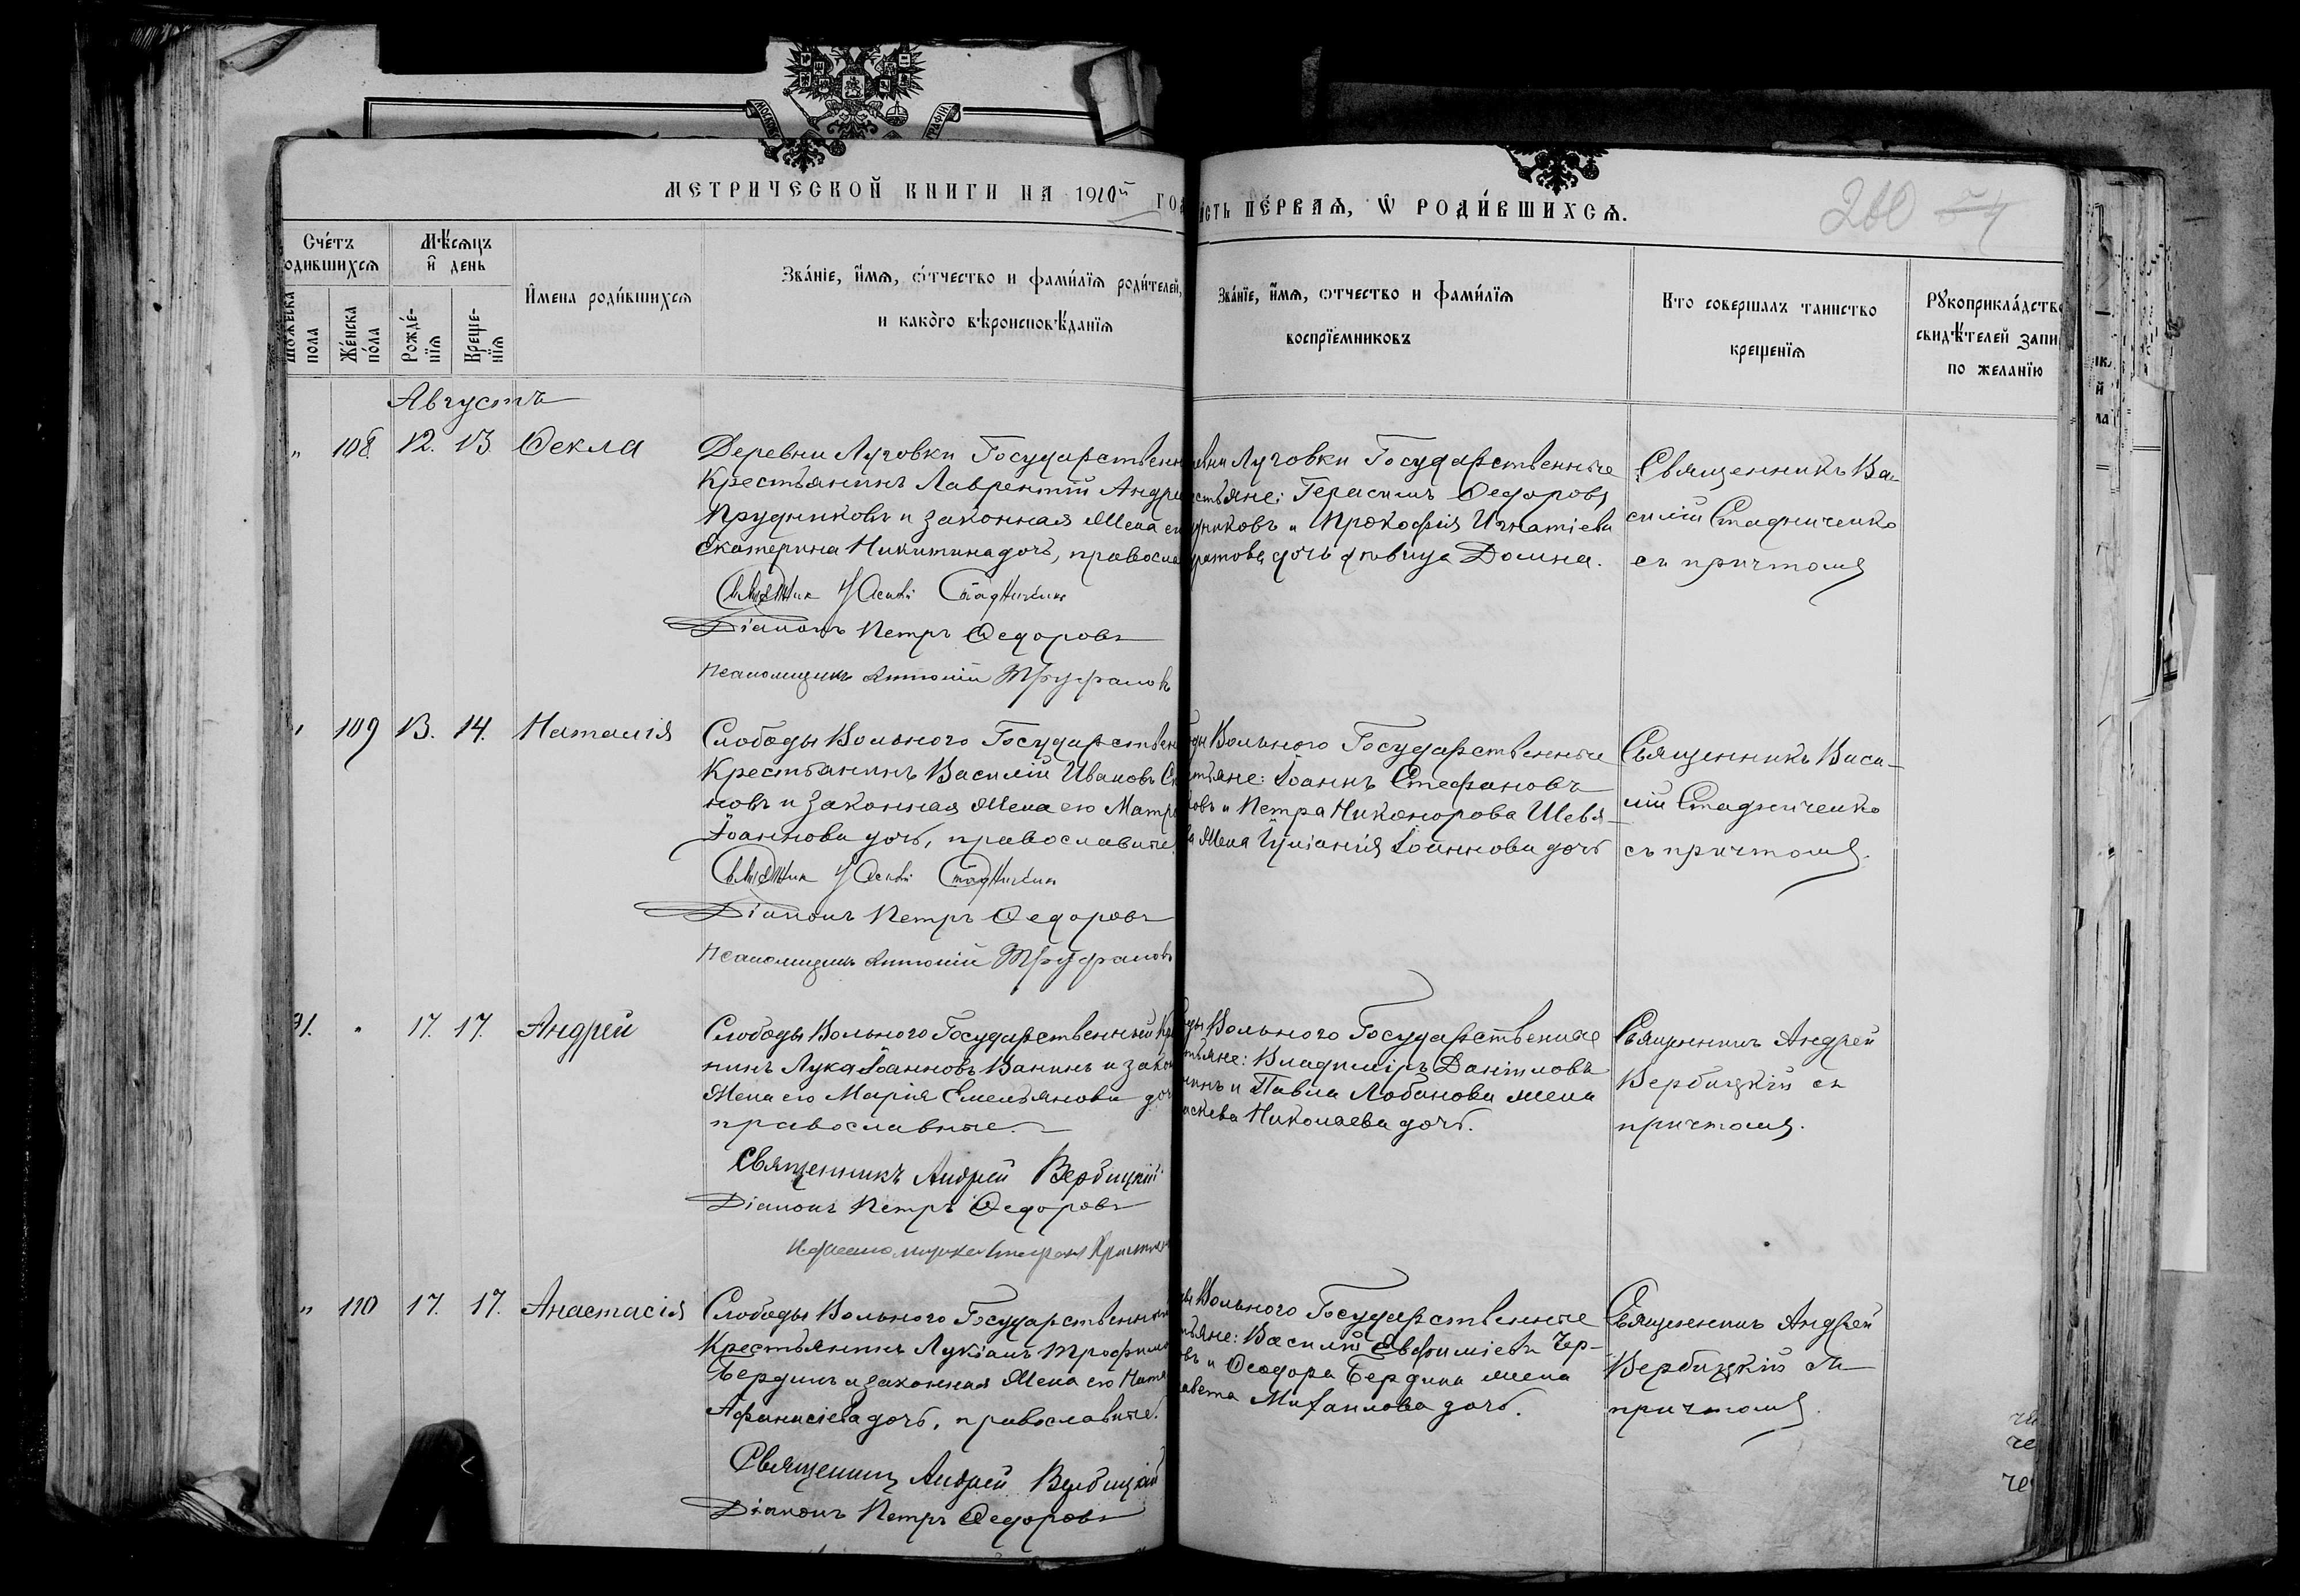 МЕТРИЧЕСКОЙ КНИГИ НА 1910й ГОД
ЧАСТЬ ПЕ́РВАЯ, Ѡ РОДИ́ВШИХСЯ.
260
Сче́тъ
одившихся
Мѣ́сяцъ
и҆ день
И҆мена роди́вшихся
Зва́нїе, и҆́мя, ѻ҆́тчество и фами́лїя роди́телей,
и како̀го вѣроисповѣ́данїя
Зва́нїе, и҆́мя, ѻтчество и фами́лїя
воспрїемниковъ
Кто совершалъ таинство
крещенїя
Рꙋкоприкла́дство
свидѣ́телей запи
по желанїю
Мꙋжеска
пола
Же́нска
по́ла
Рожде́-
нїя
Креще-
нїя
Августъ
„ 108. 12. 13. Ѳекла
Деревни Луговки Государственн
Крестьянинъ Лаврентій Андре
Прудниковъ и законная жена ег
Екатерина Никитина дочь, правосла
Священник Василій Стадниченко
Діаконъ Петръ Ѳедоровъ
Псаломщикъ Антоній Труфановъ
евни Луговки Государственные
стьяне: Герасимъ Ѳедоровъ
дниковъ и Прокофія Игнатіева
дочь дѣвица Домна.
Священникъ Ва-
силій Стадниченко
съ причтомъ
„ 109 13. 14. Наталія
Слободы Вольного Государствен
Крестьянинъ Василій Ивановъ Се
новъ и законная жена его Матр
Іоаннова дочь, православные.
Священник Василій Стадниченко
Діаконъ Петръ Ѳедоровъ
Псаломщикъ Антоній Труфановъ
ды Вольного Государственные
стьяне: Іоаннъ Стефановъ
ковъ и Петра Никонорова Шевя-
ва жена Іуліанія Іоаннова дочь
Священникъ Васи-
лій Стадниченко
съ причтомъ.
91. „ 17. 17. Андрей
Слободы Вольного Государственный Кр
нинъ Лука Іоанновъ Ванинъ и зако
жена его Марія Емельянова доч
православные.
Священникъ Андрей Вербицкій
Діаконъ Петръ Ѳедоровъ
ды Вольного Государственные
стьяне: Владиміръ Даніиловъ
нинъ и Павла Лобанова жена
аскева Николаева дочь.
Священникъ Андрей
Вербицкій съ
причтомъ.
„ 110 17. 17. Анастасія
Слободы Вольного Государственны
Крестьянинъ Лукіанъ Трофимо
Бердинъ и законная жена его Ната
Афанасіева дочь, православные.
Священникъ Андрей Вербицкій
Діаконъ Петръ Ѳедоровъ
ды Вольного Государственные
стьяне: Василій Евфиміевъ Чер-
овъ и Ѳеодора Бердина жена
завета Михаилова дочь.
Священникъ Андрей
Вербицкій съ
причтомъ.